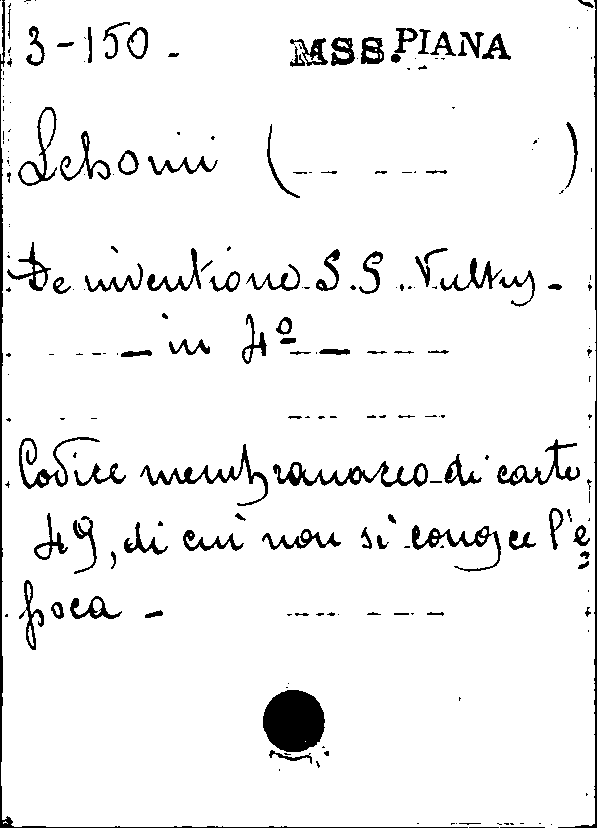 3-150. MSS. PIANA
Leboini ( )
De inventione S.S. Vultus -
- in 4º -
Codice membranaceo di carte
49, di cui non si conosce l'e
poca -